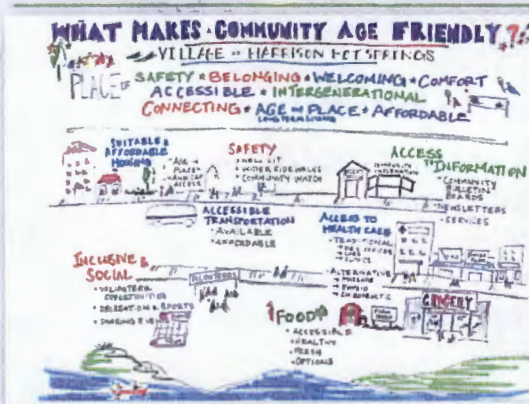 WHAT MAKES A COMMUNITY AGE FRIENDLY?
VILLAGE OF HARRISON HOT SPRINGS
PLACE OF SAFETY * BELONGING * WELCOMING * COMFORT
ACCESSIBLE * INTERGENERATIONAL
CONNECTING * AGE IN PLACE * AFFORDABLE
SUITABLE & AFFORDABLE HOUSING
• AGE IN PLACE
ACCESS
SAFETY
• WELL LIT
• WIDER SIDEWALKS
• COMMUNITY WATCH
COMMUNITY INFORMATION
ACCESS TO INFORMATION
• COMMUNITY BULLETIN BOARDS
• NEWSLETTERS
• SERVICES
ACCESSIBLE TRANSPORTATION
• AVAILABLE
• AFFORDABLE
ACCESS TO HEALTH CARE
• TRADITIONAL
• LABS
• CLINICS
• ALTERNATIVE
• MASSAGE
• PHYSIO
• CHIROPRACTIC
INCLUSIVE & SOCIAL
• VOLUNTEER OPPORTUNITIES
• RECREATION & SPORTS
FOOD
• ACCESSIBLE
• HEALTHY
• FRESH
• OPTIONS
GROCERY